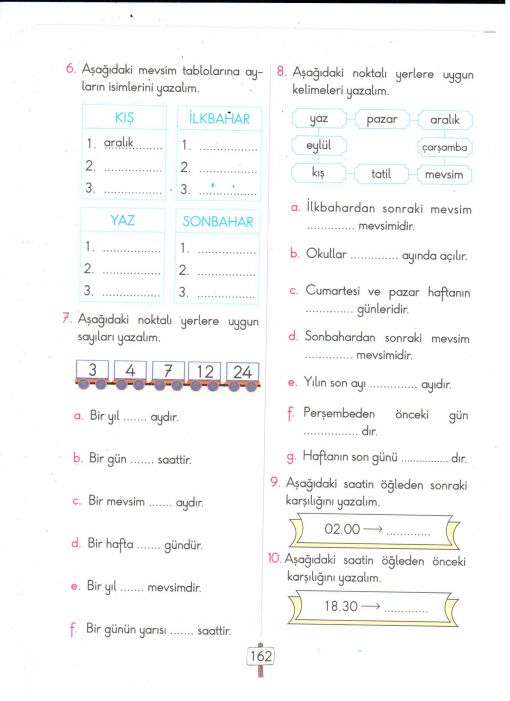 6. Aşağıdaki mevsim tablolarına ay-
ların isimlerini yazalım.
KIŞ
1. aralık.........
2. ................
3. ................
İLKBAHAR
1. ................
2. ................
3. ................
YAZ
1. ................
2. ................
3. ................
SONBAHAR
1. ................
2. ................
3. ................
7. Aşağıdaki noktalı yerlere uygun
sayıları yazalım.
3 4 7 12 24
a. Bir yıl ....... aydır.
b. Bir gün ....... saattir.
c. Bir mevsim ....... aydır.
d. Bir hafta ....... gündür.
e. Bir yıl ....... mevsimdir.
f. Bir günün yarısı ....... saattir.
8. Aşağıdaki noktalı yerlere uygun
kelimeleri yazalım.
yaz pazar aralık
eylül çarşamba
kış tatil mevsim
a. İlkbahardan sonraki mevsim
.............. mevsimidir.
b. Okullar .............. ayında açılır.
c. Cumartesi ve pazar haftanın
.............. günleridir.
d. Sonbahardan sonraki mevsim
.............. mevsimidir.
e. Yılın son ayı .............. ayıdır.
f. Perşembeden önceki gün
................ dır.
g. Haftanın son günü .............. dır.
9. Aşağıdaki saatin öğleden sonraki
karşılığını yazalım.
02.00 → .............
10. Aşağıdaki saatin öğleden önceki
karşılığını yazalım.
18.30 → .............
162